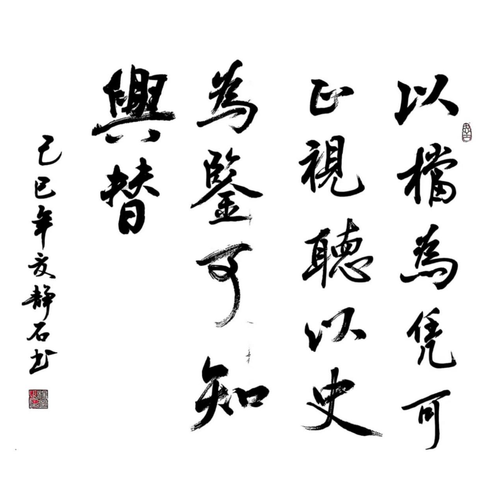 以檔為凭可
正視聽以史
為鑒可知
興替
己巳年夏靜石书